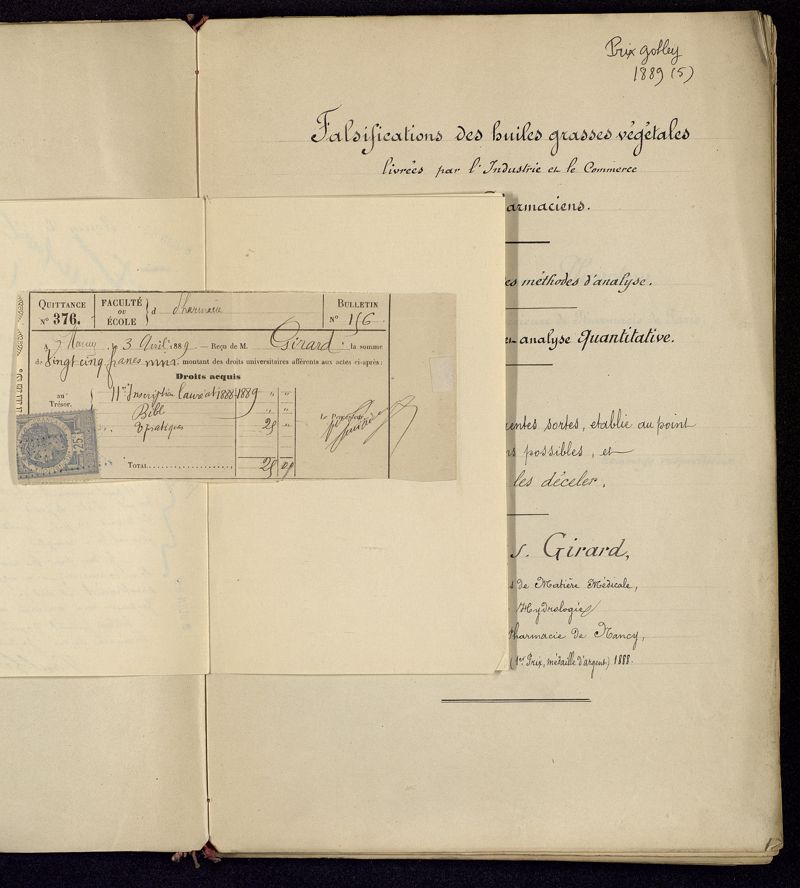 Prix Gobley
1889 (5)
Falsifications des huiles grasses végétales
livrées par l'Industrie et le Commerce
armaciens.
es méthodes d'analyse.
analyse Quantitative.
rentes sortes, etablie au point
ns possibles, et
les déceler,
s. Girard,
s de Matière Médicale,
Hydrologie
Pharmacie de Nancy,
(1er Prix, médaille d'argent) 1888.
QUITTANCE
N° 376.
FACULTÉ
OU
ÉCOLE
d Pharmacie
BULLETIN
N° 156
A Nancy, le 3 Avril 1889. — Reçu de M. Girard, la somme
de Vingt cinq francs montant des droits universitaires afférents aux actes ci-après:
Droits acquis
au
Trésor.
11me Inscription lauréat 1888-1889 " "
Bibl " "
T pratiques 25 "
Le
TOTAL 25
25